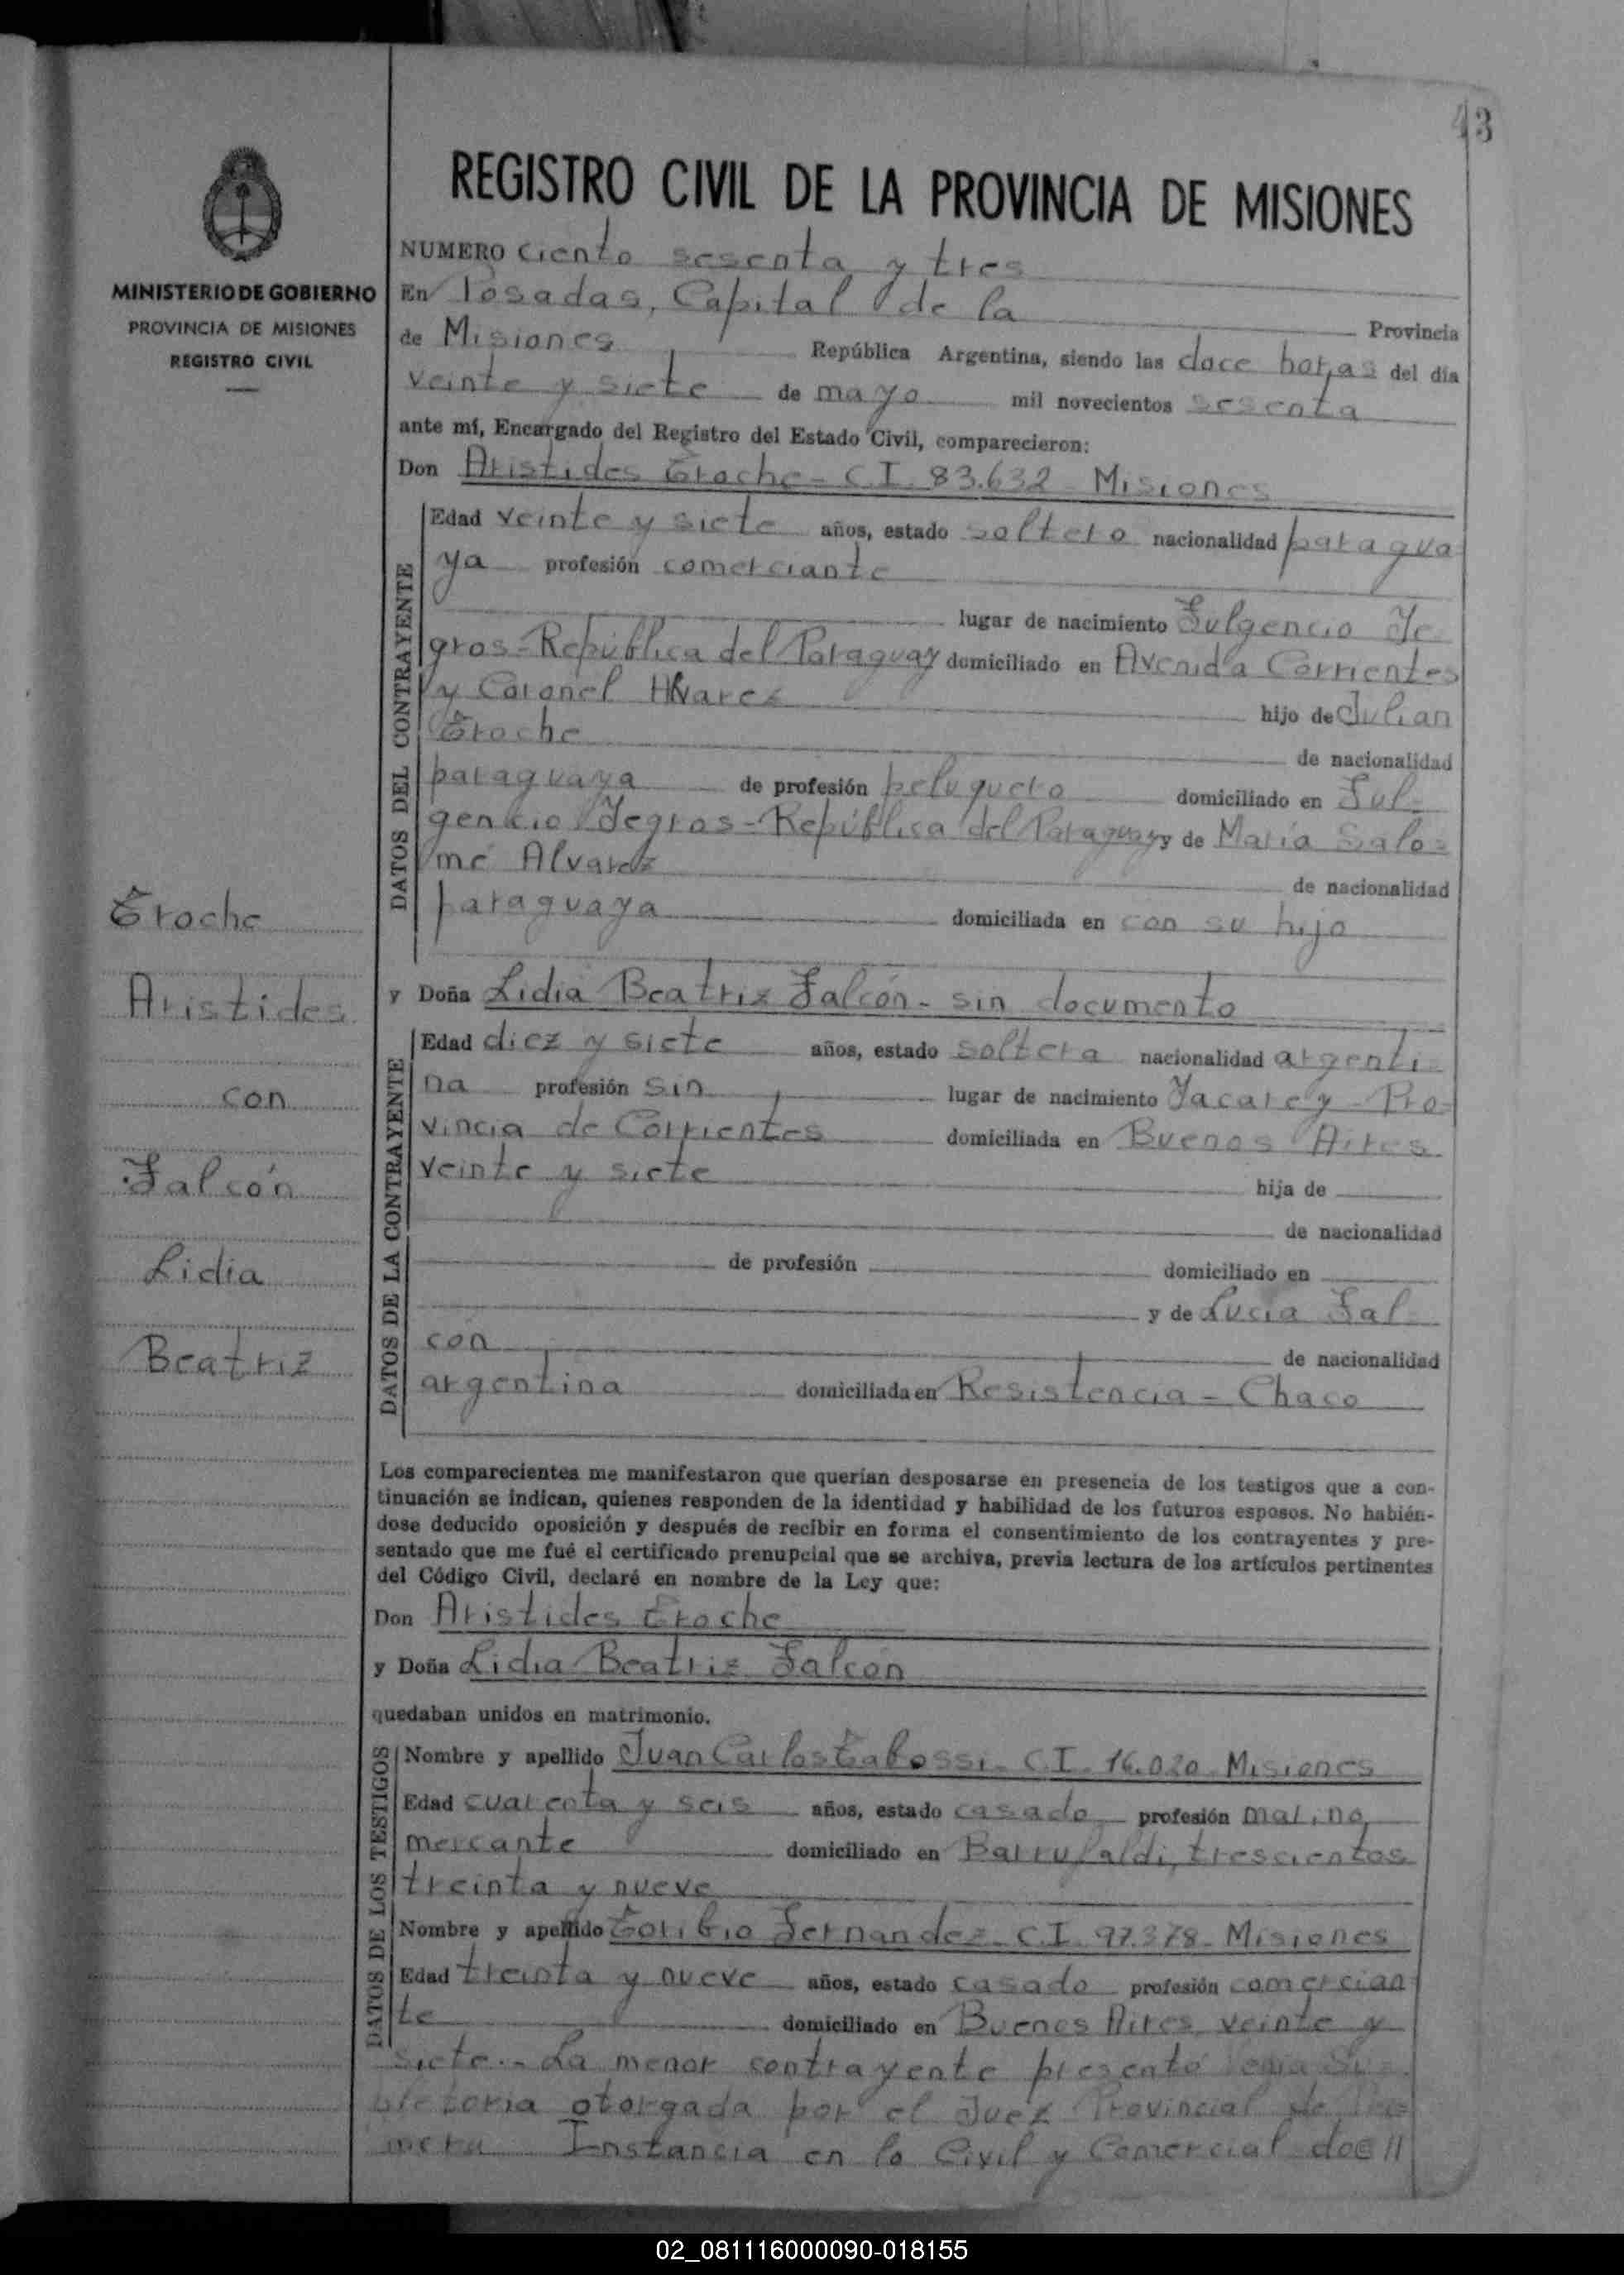 43
REGISTRO CIVIL DE LA PROVINCIA DE MISIONES
MINISTERIO DE GOBIERNO
PROVINCIA DE MISIONES
REGISTRO CIVIL
NUMERO ciento sesenta y tres
En Posadas, Capital de la Provincia
de Misiones República Argentina, siendo las doce horas del día
veinte y siete de mayo mil novecientos sesenta
ante mí, Encargado del Registro del Estado Civil, comparecieron:
Don Aristides Troche - C.I. 83.632 - Misiones
DATOS DEL CONTRAYENTE
Edad veinte y siete años, estado soltero nacionalidad paragua-
ya profesión comerciante
lugar de nacimiento Fulgencio Ye-
gros - República del Paraguay domiciliado en Avenida Corrientes
y Coronel Alvarez hijo de Julian
Troche de nacionalidad
paraguaya de profesión peluquero domiciliado en Ful-
gencio Yegros - República del Paraguay y de María Salo-
mé Alvarez de nacionalidad
paraguaya domiciliada en con su hijo
Troche
Aristides
con
Falcón
Lidia
Beatriz
y Doña Lidia Beatriz Falcón - sin documento
DATOS DE LA CONTRAYENTE
Edad diez y siete años, estado soltera nacionalidad argenti-
na profesión sin lugar de nacimiento Yacarey - Pro-
vincia de Corrientes domiciliada en Buenos Aires
veinte y siete hija de
de nacionalidad
de profesión domiciliado en
y de Lucia Fal-
cón de nacionalidad
argentina domiciliada en Resistencia - Chaco
Los comparecientes me manifestaron que querían desposarse en presencia de los testigos que a con-
tinuación se indican, quienes responden de la identidad y habilidad de los futuros esposos. No habién-
dose deducido oposición y después de recibir en forma el consentimiento de los contrayentes y pre-
sentado que me fué el certificado prenupcial que se archiva, previa lectura de los artículos pertinentes
del Código Civil, declaré en nombre de la Ley que:
Don Aristides Troche
y Doña Lidia Beatriz Falcón
quedaban unidos en matrimonio.
DATOS DE LOS TESTIGOS
Nombre y apellido Juan Carlos Tabossi - C.I. 16.020 - Misiones
Edad cuarenta y seis años, estado casado profesión marino
mercante domiciliado en Barrufaldi, trescientos
treinta y nueve
Nombre y apellido Toribio Fernandez - C.I. 97.378 - Misiones
Edad treinta y nueve años, estado casado profesión comercian-
te domiciliado en Buenos Aires veinte y
siete.- La menor contrayente presentó venia Su-
pletoria otorgada por el Juez Provincial de Pri-
mera Instancia en lo Civil y Comercial doc//
02_081116000090-018155